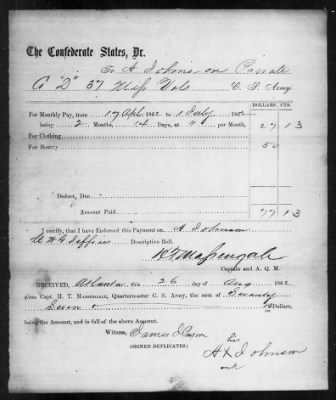 The Confederate States, Dr.
To A Johnson Private
Co "D" 37 Miss Vols C. S. Army.
DOLLARS. CTS.
For Monthly Pay, from 17 Apl. 1862 to 1 July 1862
being 2 Months, 14 Days, at 11 per Month, 27 13
For Clothing
For Bounty 50
Deduct, Due
Amount Paid 77 13
I certify, that I have Endorsed this Payment on A Johnson
Descriptive Roll.
H T Massengale
Captain and A. Q. M.
RECEIVED, Atlanta this 26 day of Aug 1862
given Capt. H. T. MASSENGALE, Quartermaster C. S. Army, the sum of Seventy
Seven Dollars,
being the Amount, and in full of the above Amount.
Witness, James
(SIGNED DUPLICATES)
his
A X Johnson
mark